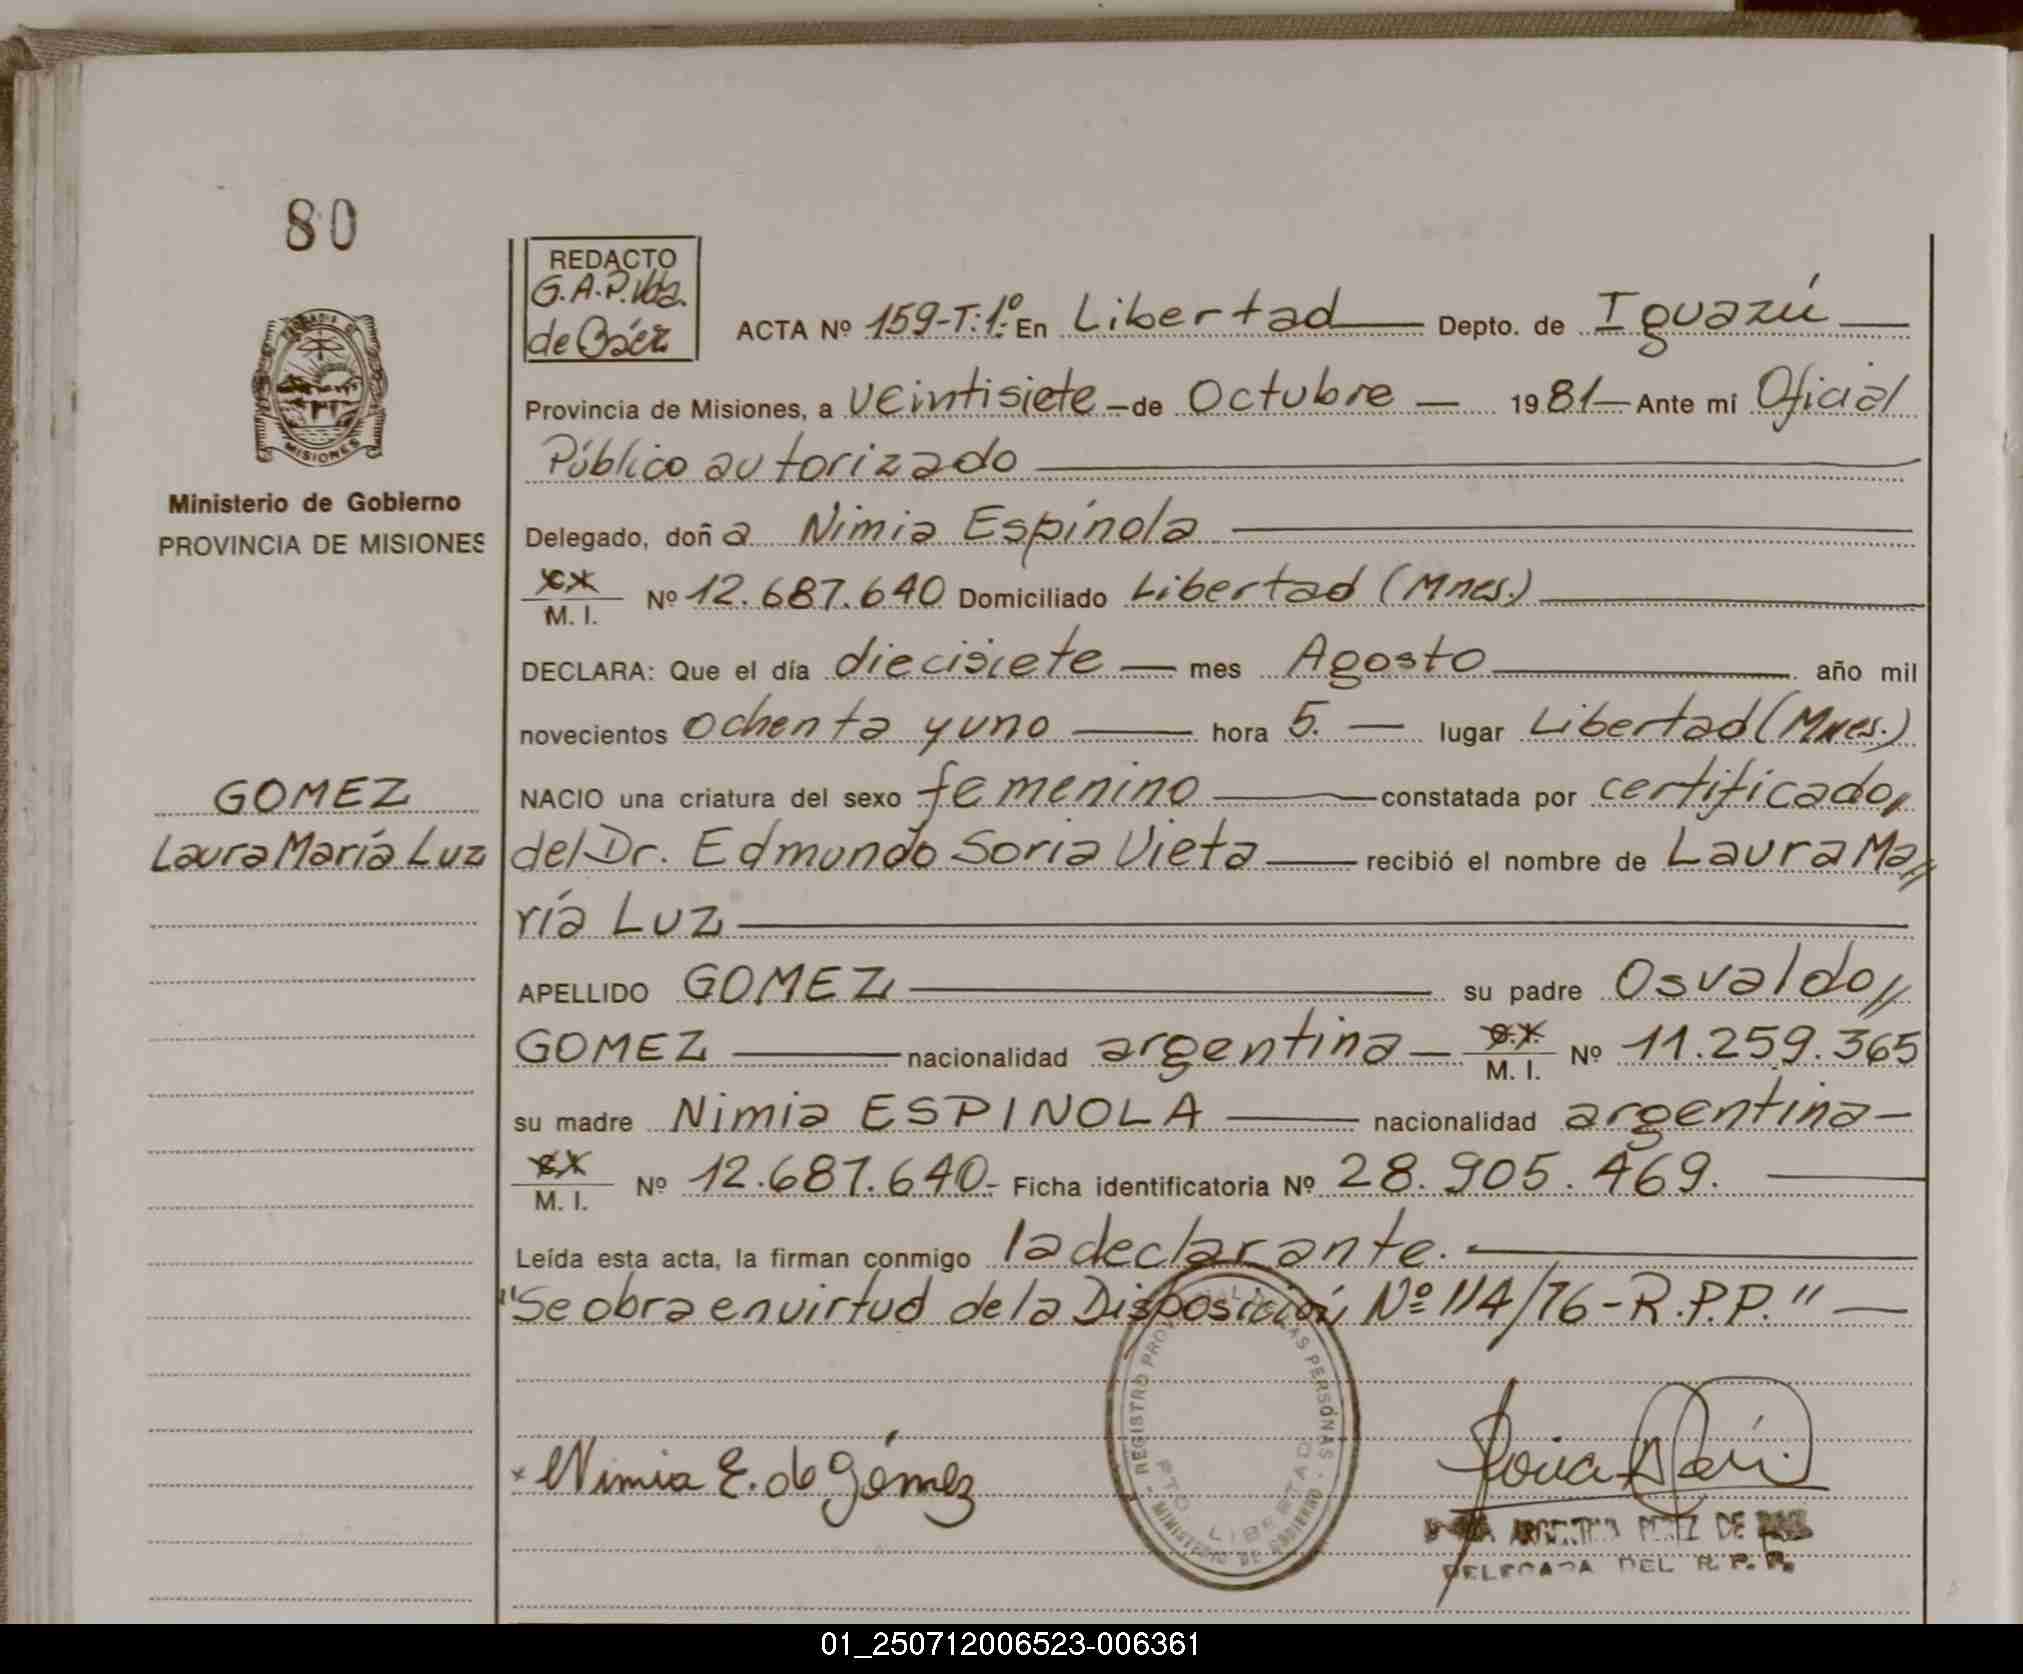 80
REDACTO
G.A.P. Vda.
de Báez
ACTA Nº 159-T:1º- En Libertad Depto. de Iguazú
Provincia de Misiones, a veintisiete de Octubre 1981 Ante mi Oficial
Público autorizado
MISIONES
Ministerio de Gobierno
PROVINCIA DE MISIONES
Delegado, doña Nimia Espínola
M. I. Nº 12.687.640 Domiciliado Libertad (Mnes.)
DECLARA: Que el día diecisiete mes Agosto año mil
novecientos ochenta y uno hora 5. lugar Libertad (Mnes.)
GOMEZ
Laura María Luz
NACIO una criatura del sexo femenino constatada por certificado,,
del Dr. Edmundo Soria Vieta recibió el nombre de Laura Ma,,
ría Luz
APELLIDO GOMEZ su padre Osvaldo,,
GOMEZ nacionalidad argentina M. I. Nº 11.259.365
su madre Nimia ESPINOLA nacionalidad argentina
M. I. Nº 12.687.640- Ficha identificatoria Nº 28.905.469.
Leída esta acta, la firman conmigo la declarante.
"Se obra en virtud de la Disposición Nº 114/76-R.P.P."
REGISTRO PROVINCIAL DE LAS PERSONAS
PTO LIBERTAD
MINISTERIO DE GOBIERNO
x Nimia E. de Gómez
ARGENTINA PEREZ DE
DELEGADA DEL R. P. P.
01_250712006523-006361